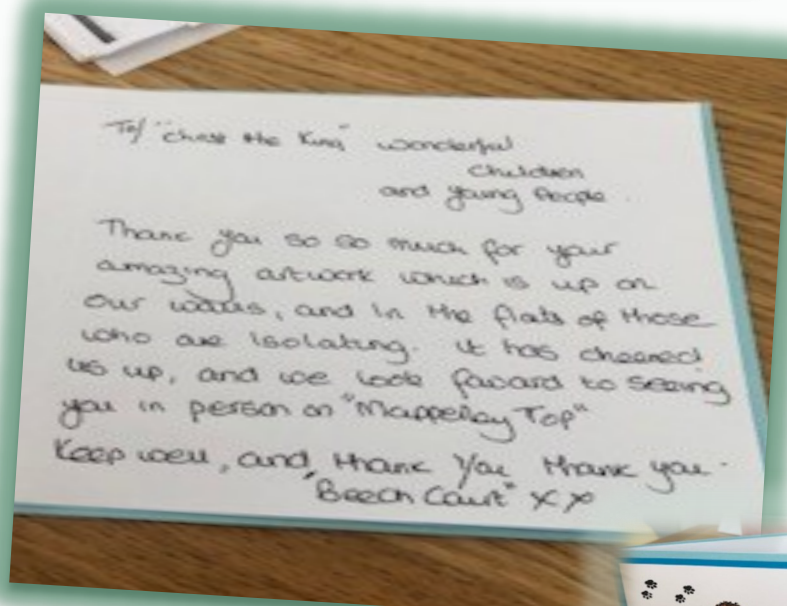 To/ "Christ the King" wonderful
Children
and young People.
Thank you so so much for your
amazing artwork which is up on
our walls, and in the flats of those
who are isolating. it has cheered
us up, and we look forward to seeing
you in person on "Mapperley Top"
Keep well, and thank you thank you.
"Beech Court" x x